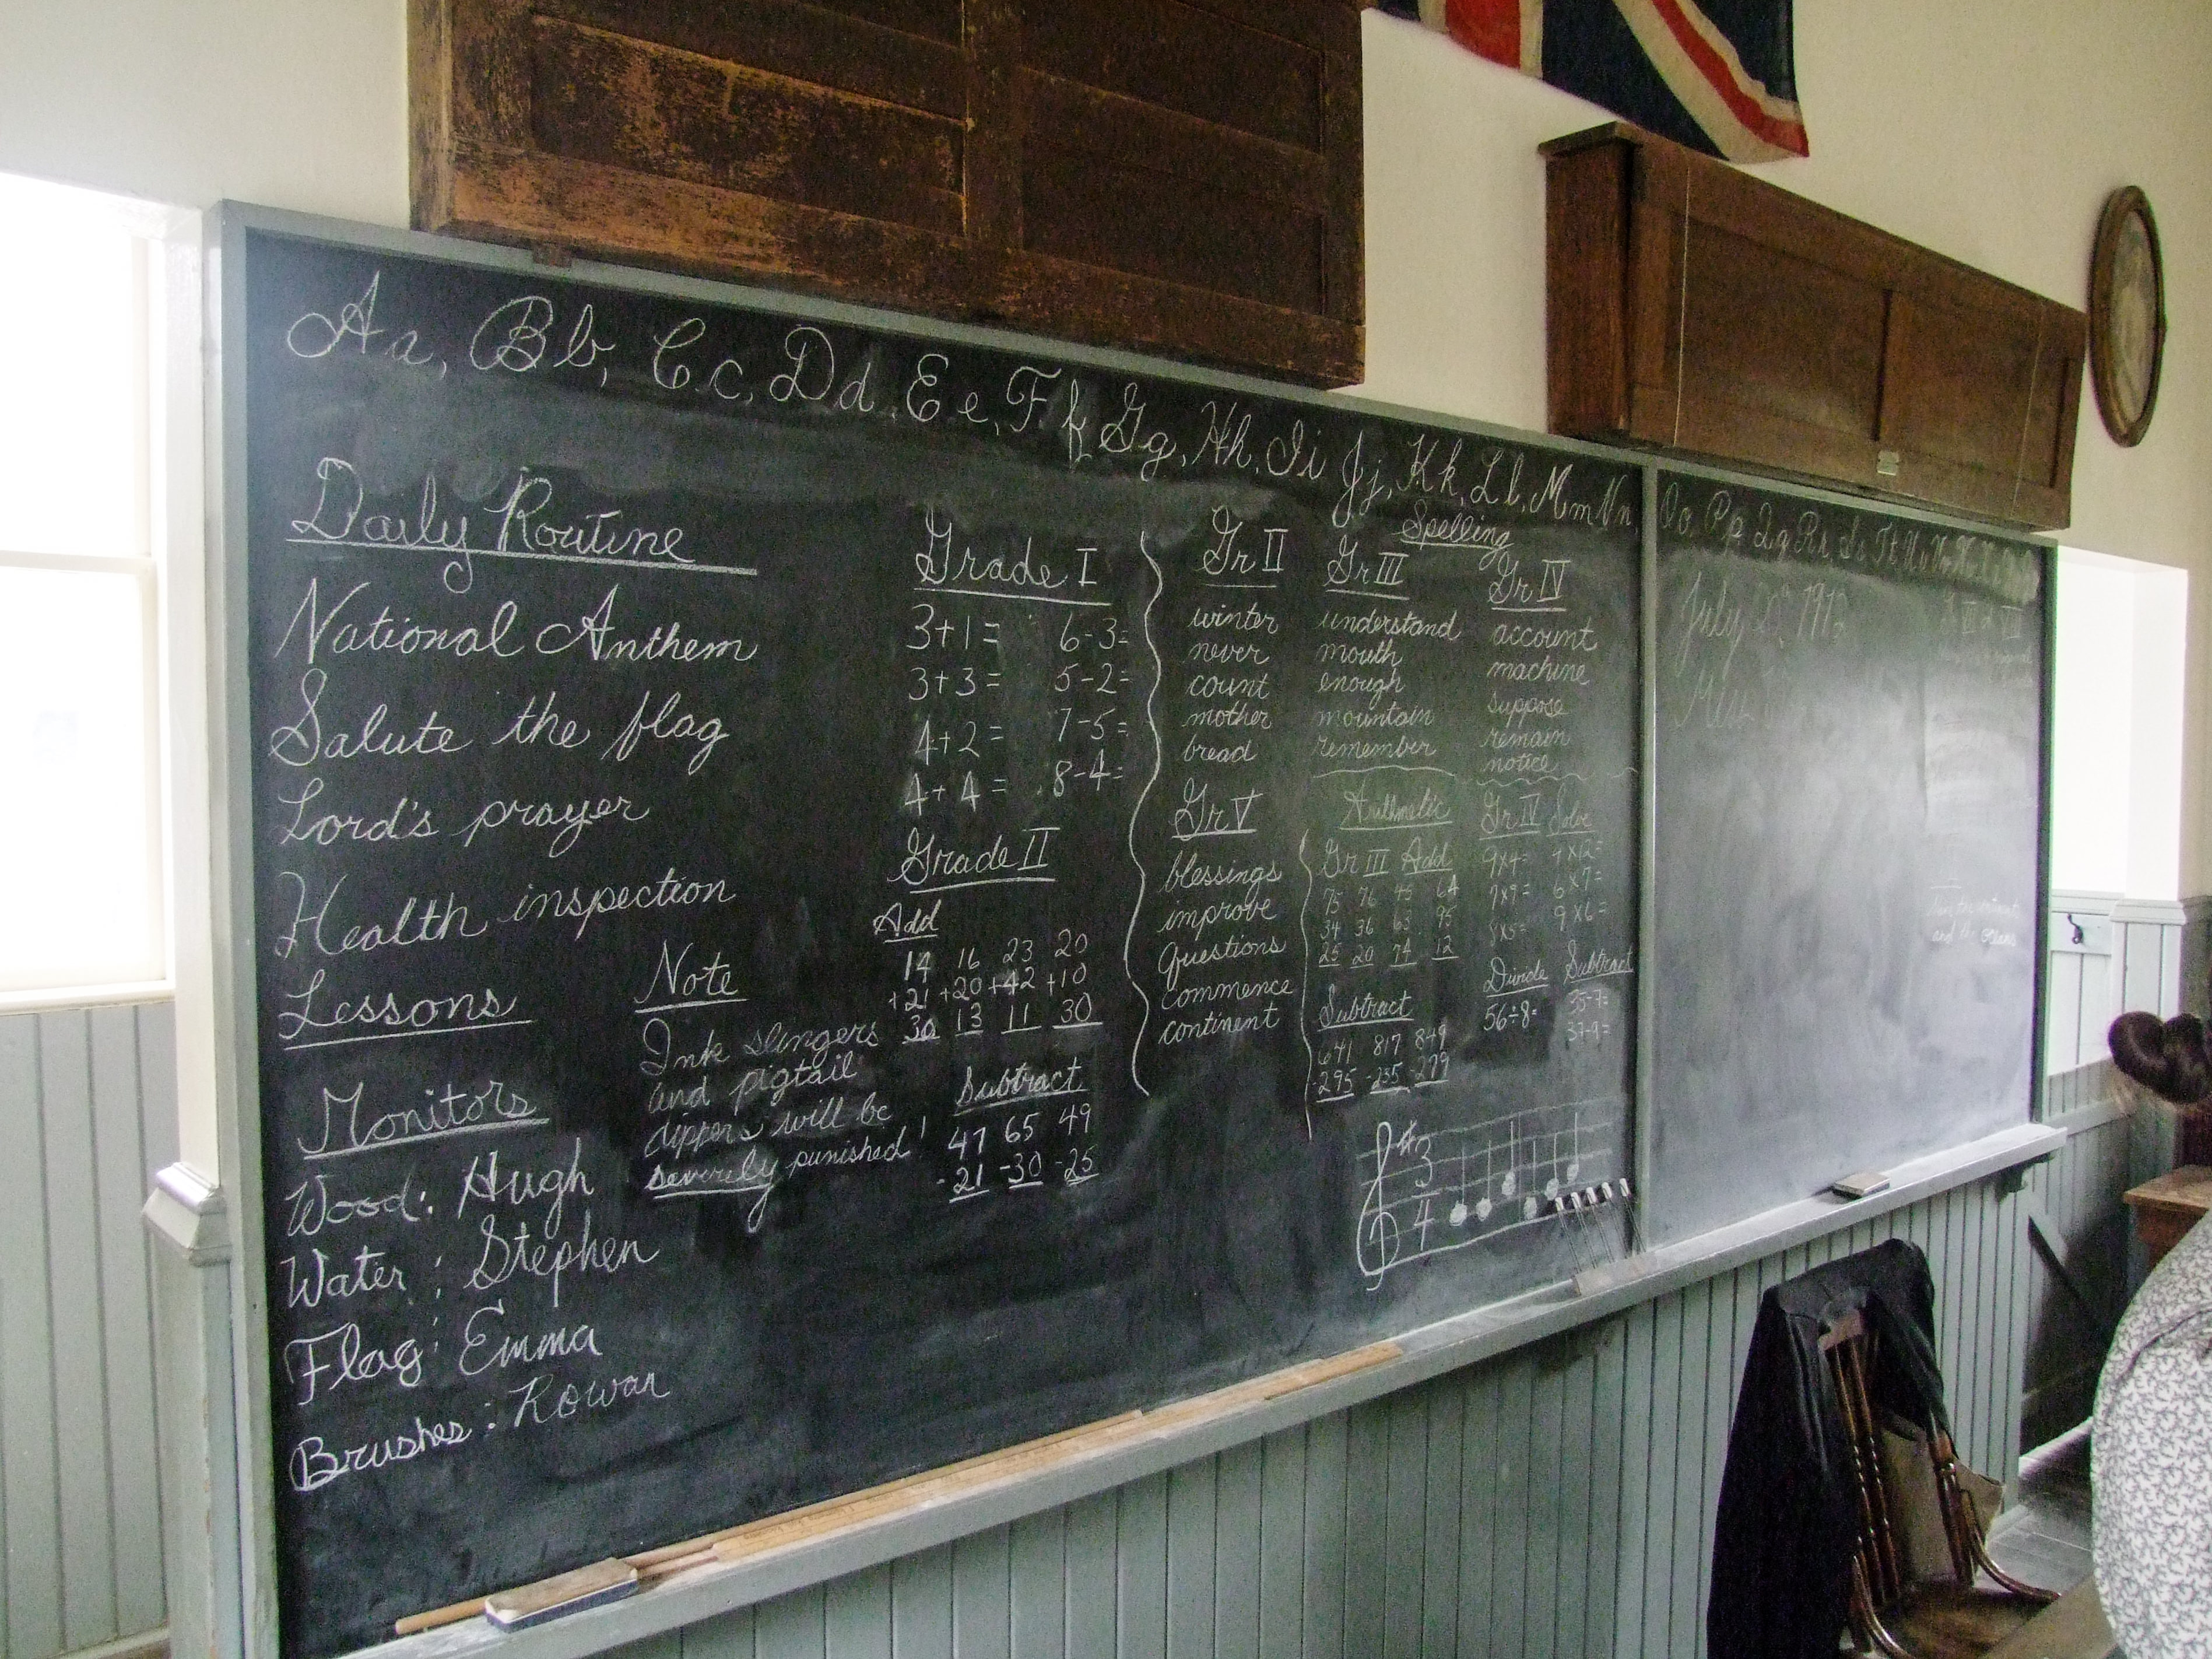 Aa, Bb, Cc, Dd, Ee, Ff, Gg, Hh, Ii, Jj, Kk, Ll, Mm Nn
Oo, Pp, Qq, Rr, Ss, Tt
Daily Routine
National Anthem
Salute the flag
Lord's prayer
Health inspection
Lessons
Monitors
Wood: Hugh
Water: Stephen
Flag: Emma
Brushes: Rowan
Note
Ink slingers
and pigtail
dippers will be
severely punished!
Grade I
3+1= 6-3=
3+3= 5-2=
4+2= 7-5=
4+4= 8-4=
Grade II
Add
14 16 23 20
+21 +20 +42 +10
30 13 11 30
Subtract
47 65 49
-21 -30 -25
Spelling
Gr II
winter
never
count
mother
bread
Gr III
understand
mouth
enough
mountain
remember
Gr IV
account
machine
suppose
remain
notice
Gr V
blessings
improve
Questions
commence
continent
Arithmetic
Gr III Add
75 76 45 64
34 36 63 95
25 20 74 12
Subtract
641 817 849
-295 -235 -279
Gr IV Solve
9x4= 7x12=
7x9= 6x7=
8x5= 9x6=
Divide
56÷8=
Subtract
35-7=
37-9=
3
4
July
Miss
and the